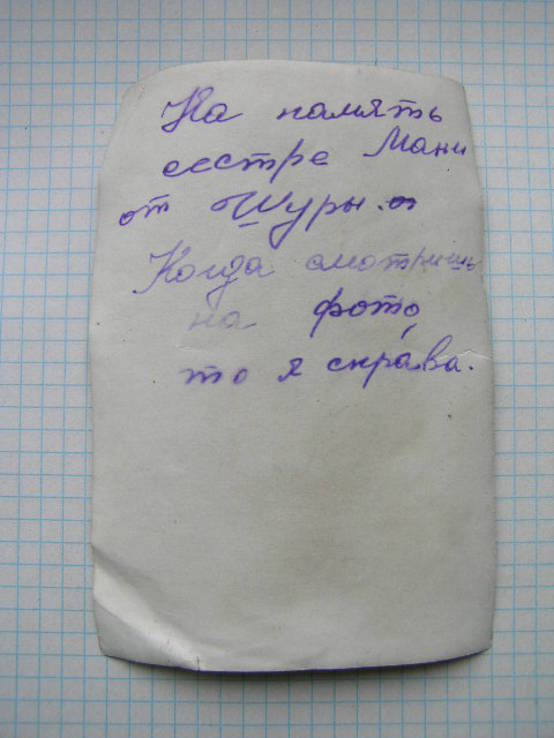 На память
сестре Мани
от Шуры.
Когда смотришь
на фото,
то я справа.